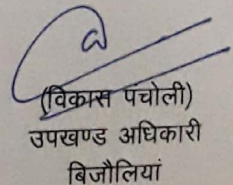 (विकास पंचोली)
उपखण्ड अधिकारी
बिजौलियां